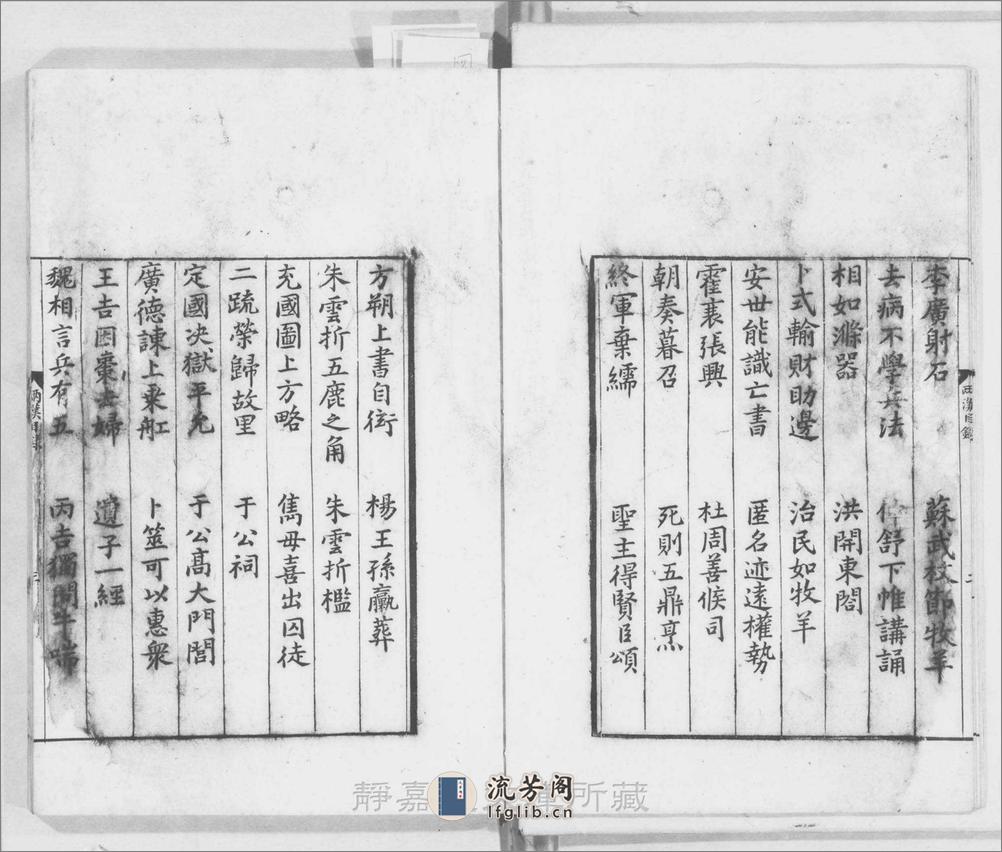 李廣射石　蘇武杖節牧羊
去病不學兵法　仲舒下帷講誦
相如滌器　洪開東閤
卜式輸財助邊　治民如牧羊
安世能識亡書　匿名迹遠權勢
霍襄張興　杜周善候司
朝奏暮召　死則五鼎烹
終軍棄繻　聖主得賢臣頌
兩漢目錄
二
方朔上書自衒　楊王孫臝葬
朱雲折五鹿之角　朱雲折檻
充國圖上方略　雋母喜出囚徒
二疏榮歸故里　于公祠
定國决獄平允　于公高大門閭
廣德諫上乗舡　卜筮可以惠衆
王吉因棗去婦　遺子一經
魏相言兵有五　丙吉獨問牛喘
兩漢目錄
靜嘉 所藏
流芳阁
lfglib.cn